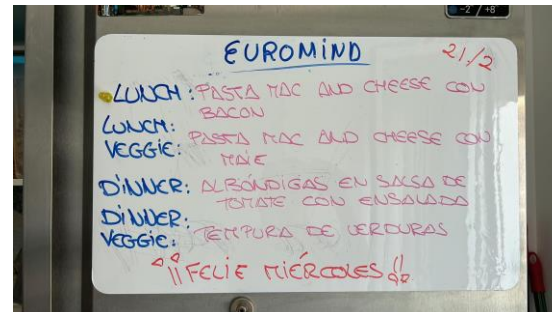 -2 / +8
EUROMIND 21/2
LUNCH: PASTA MAC AND CHEESE CON
BACON
LUNCH:
VEGGIE: PASTA MAC AND CHEESE CON
MAIE
DINNER: ALBÓNDIGAS EN SALSA DE
TOMATE CON ENSALADA
DINNER:
VEGGIE: TEMPURA DE VERDURAS
¡¡FELIE MIÉRCOLES!!